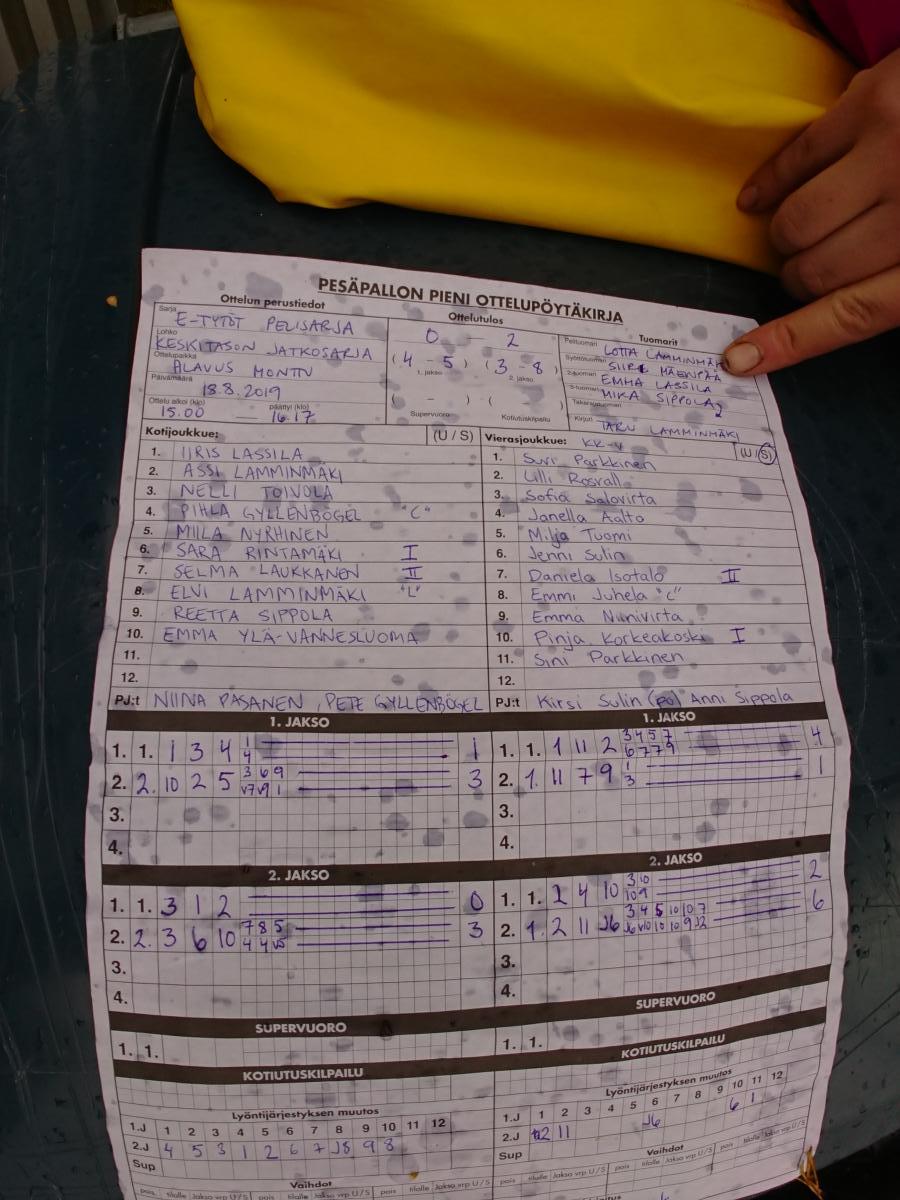 PESÄPALLON PIENI OTTELUPÖYTÄKIRJA
Ottelun perustiedot
Sarja
E-TYTÖT PELISARJA
Lohko
KESKITASON JATKOSARJA
Ottelupaikka
ALAVUS MONTTU
Päivämäärä
18.8.2019
Ottelu alkoi (klo)
15.00
päättyi (klo)
16.17
Ottelutulos
0 - 2
(4 - 5) (3 - 8)
1. jakso 2. jakso
( - ) ( )
Supervuoro Kotiutuskilpailu
Tuomarit
Pelituomari
LOTTA LAMMINMÄKI
Syöttötuomari
SIIRI MÄENPÄÄ
2-tuomari
EMMA LASSILA
3-tuomari
MIKA SIPPOLA
Takarajatuomari
Kirjuri
TARU LAMMINMÄKI
Kotijoukkue: (U / S)
1. IIRIS LASSILA
2. ASSI LAMMINMÄKI
3. NELLI TOIVOLA
4. PIHLA GYLLENBÖGEL "C"
5. MIILA NYRHINEN
6. SARA RINTAMÄKI I
7. SELMA LAUKKANEN II
8. ELVI LAMMINMÄKI "L"
9. REETTA SIPPOLA
10. EMMA YLÄ-VANNESLUOMA
11.
12.
PJ:t NIINA PASANEN, PETE GYLLENBÖGEL
Vierasjoukkue: KK-V (U / S)
1. Suvi Parkkinen
2. Ulli Rosvall
3. Sofia Salovirta
4. Janella Aalto
5. Milja Tuomi
6. Jenni Sulin
7. Daniela Isotalo II
8. Emmi Juhela "C"
9. Emma Niinivirta
10. Pinja Korkeakoski I
11. Sini Parkkinen
12.
PJ:t Kirsi Sulin (po) Anni Sippola
1. JAKSO
1. 1. 1 3 4 1 4 1
2. 2. 10 2 5 3 6 9 v7 v9 1 3
3.
4.
1. JAKSO
1. 1. 1 11 2 3 4 5 7 6 7 7 9 4
2. 1. 11 7 9 1 3 1
3.
4.
2. JAKSO
1. 1. 3 1 2 0
2. 2. 3 6 10 7 8 5 4 4 v5 3
3.
4.
2. JAKSO
1. 1. 1 4 10 3 10 10 9 2
2. 1. 2 11 J6 3 4 5 10 10 7 J6 v10 10 10 9 J2 6
3.
4.
SUPERVUORO
1. 1.
SUPERVUORO
1. 1.
KOTIUTUSKILPAILU
KOTIUTUSKILPAILU
Lyöntijärjestyksen muutos
1.J 1 2 3 4 5 6 7 8 9 10 11 12
2.J 4 5 3 1 2 6 7 J8 9 8
Sup
Vaihdot
pois tilalle Jakso vrp U/S pois tilalle Jakso vrp U/S
Lyöntijärjestyksen muutos
1.J 1 2 3 4 5 6 7 8 9 10 11 12
2.J 11 J6 6 1
Sup
Vaihdot
pois tilalle Jakso vrp U/S pois tilalle Jakso vrp U/S pois tilalle Jakso vrp U/S